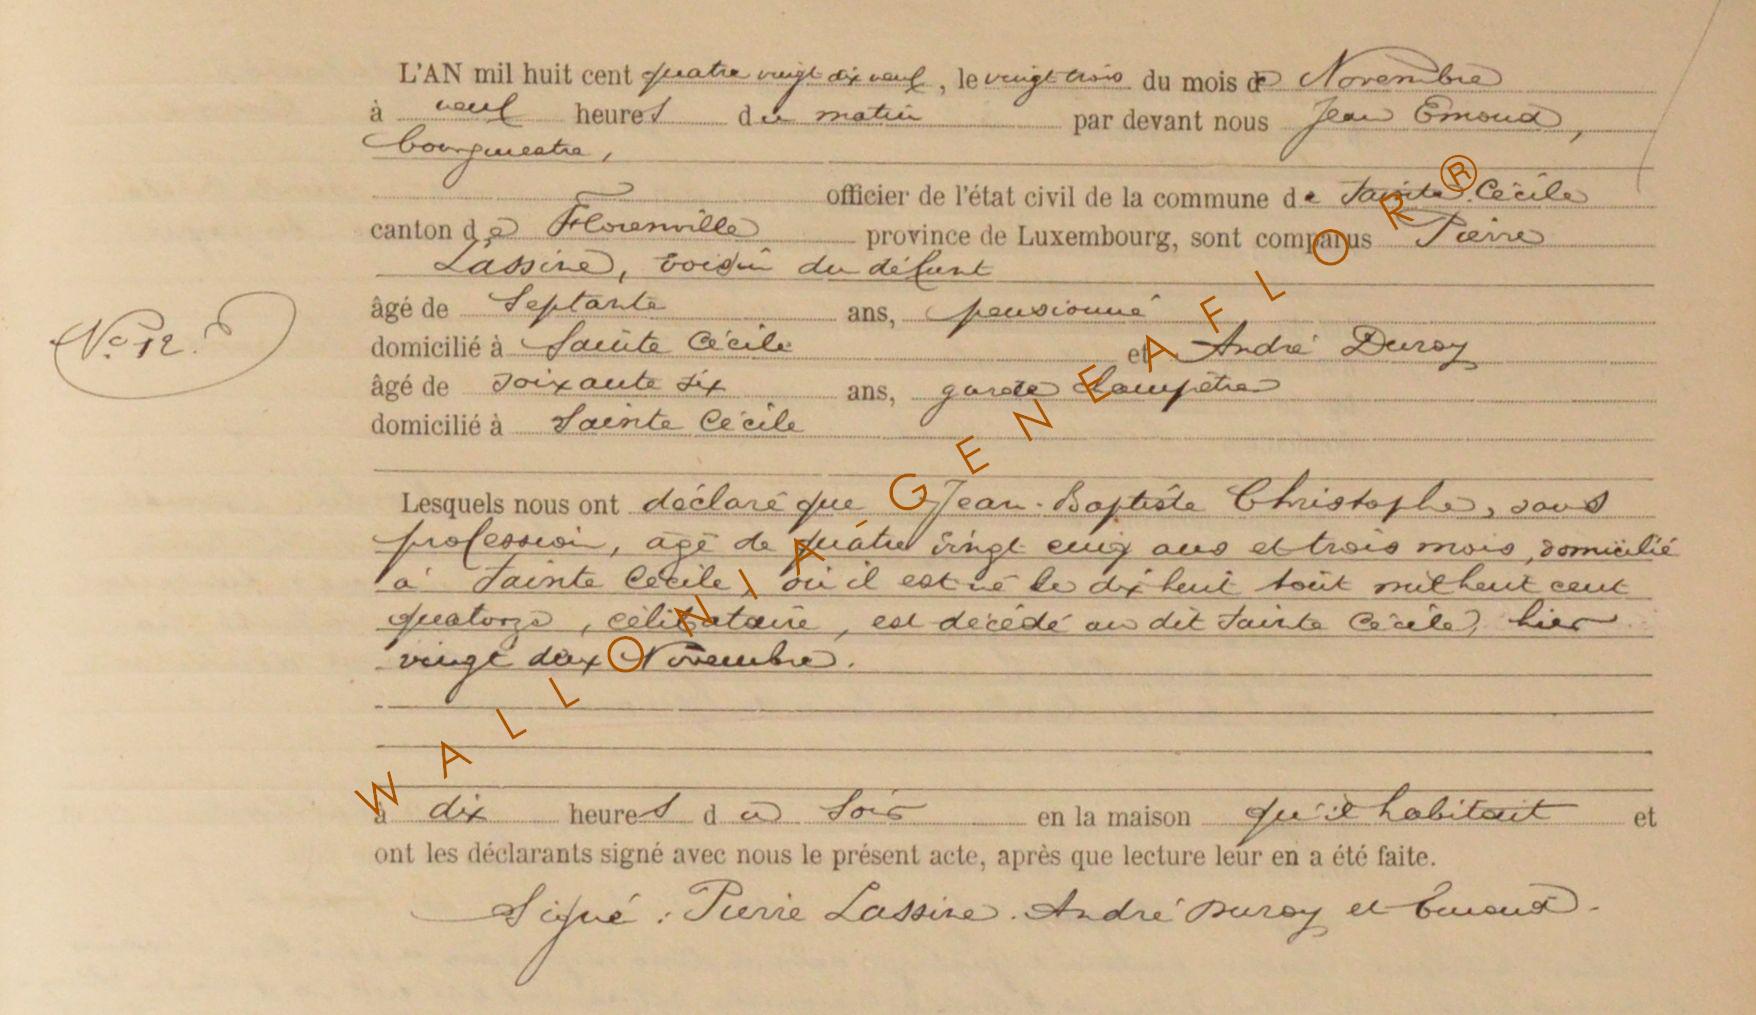 L'AN mil huit cent quatre vingt dix neuf, le vingt trois du mois de Novembre
à neuf heures du matin par devant nous Jean Emond,
bourgmestre,
officier de l'état civil de la commune de Sainte Cécile
canton de Florenville province de Luxembourg, sont comparus Pierre
Lassine, voisin du défunt
âgé de Septante ans, pensionné
N° 12.
domicilié à Sainte Cécile et André Duroy
âgé de soixante six ans, garde champêtre
domicilié à Sainte Cécile
Lesquels nous ont déclaré que Jean-Baptiste Christophe, sans
profession, âgé de quatre vingt cinq ans et trois mois, domicilié
à Sainte Cécile, où il est né le dix huit août mil huit cent
quatorze, célibataire, est décédé au dit Sainte Cécile, hier
vingt deux Novembre.
à dix heures du soir en la maison qu'il habitait et
ont les déclarants signé avec nous le présent acte, après que lecture leur en a été faite.
Signé : Pierre Lassine. André Duroy et Emond.
WALLONIA GENEAFLOR R ®